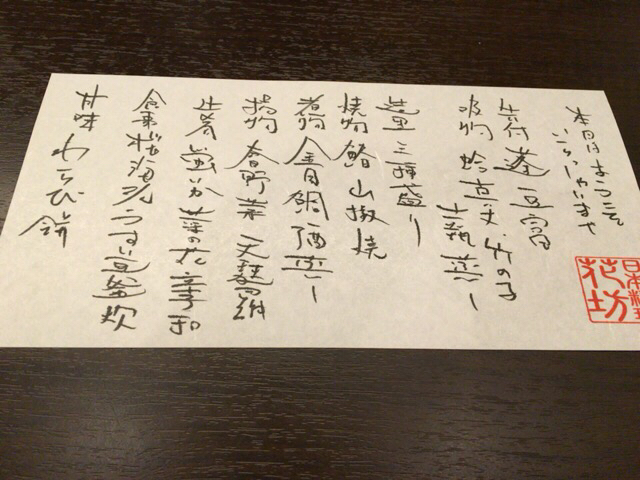 本日はようこそ
いらっしゃいませ
先付 蓬豆富
吸物 蛤吉丈 竹の子
土筆 蒸し
造里 三種盛り
焼物 鰆山椒焼
煮物 金目鯛酒蒸し
揚物 春野菜 天麩羅
止肴 蛍いか 菜の花 辛子和
食事 桜海老 うすい豆釜炊
甘味 わらび餅
日本料理
花坊